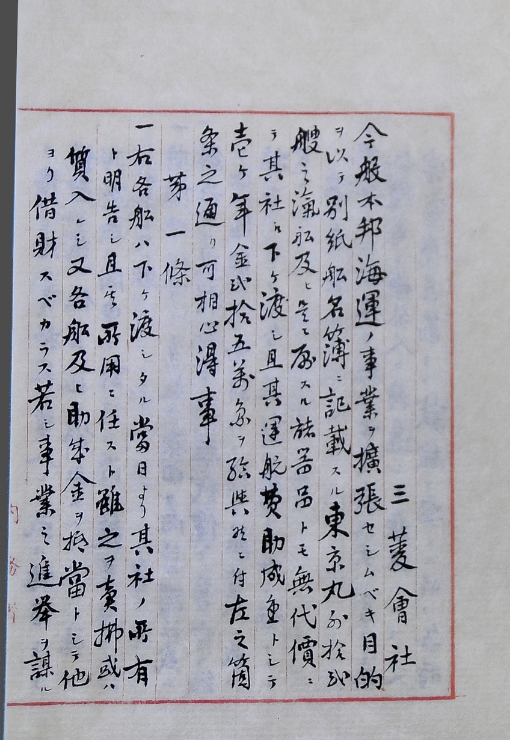 三菱會社
今般本邦海運ノ事業ヲ擴張セシムベキ目的
ヲ以テ別紙船名簿ニ記載スル東京丸外拾弐
艘之滊船及ヒ是ニ属スル諸器品トモ無代價ニ
テ其社ヘ下ケ渡シ且其運航費助成金トシテ
壱ケ年金弐拾五萬円ヲ給與候ニ付左之箇
条之通リ可相心得事
第一條
一右各船ハ下ケ渡シタル當日ヨリ其社ノ所有
ト明告シ且其所用ニ任スト雖之ヲ賣拂或ハ
質入レシ又各船及ヒ助成金ヲ抵當トシテ他
ヨリ借財スベカラス若シ事業之進挙ヲ謀ル
内務省